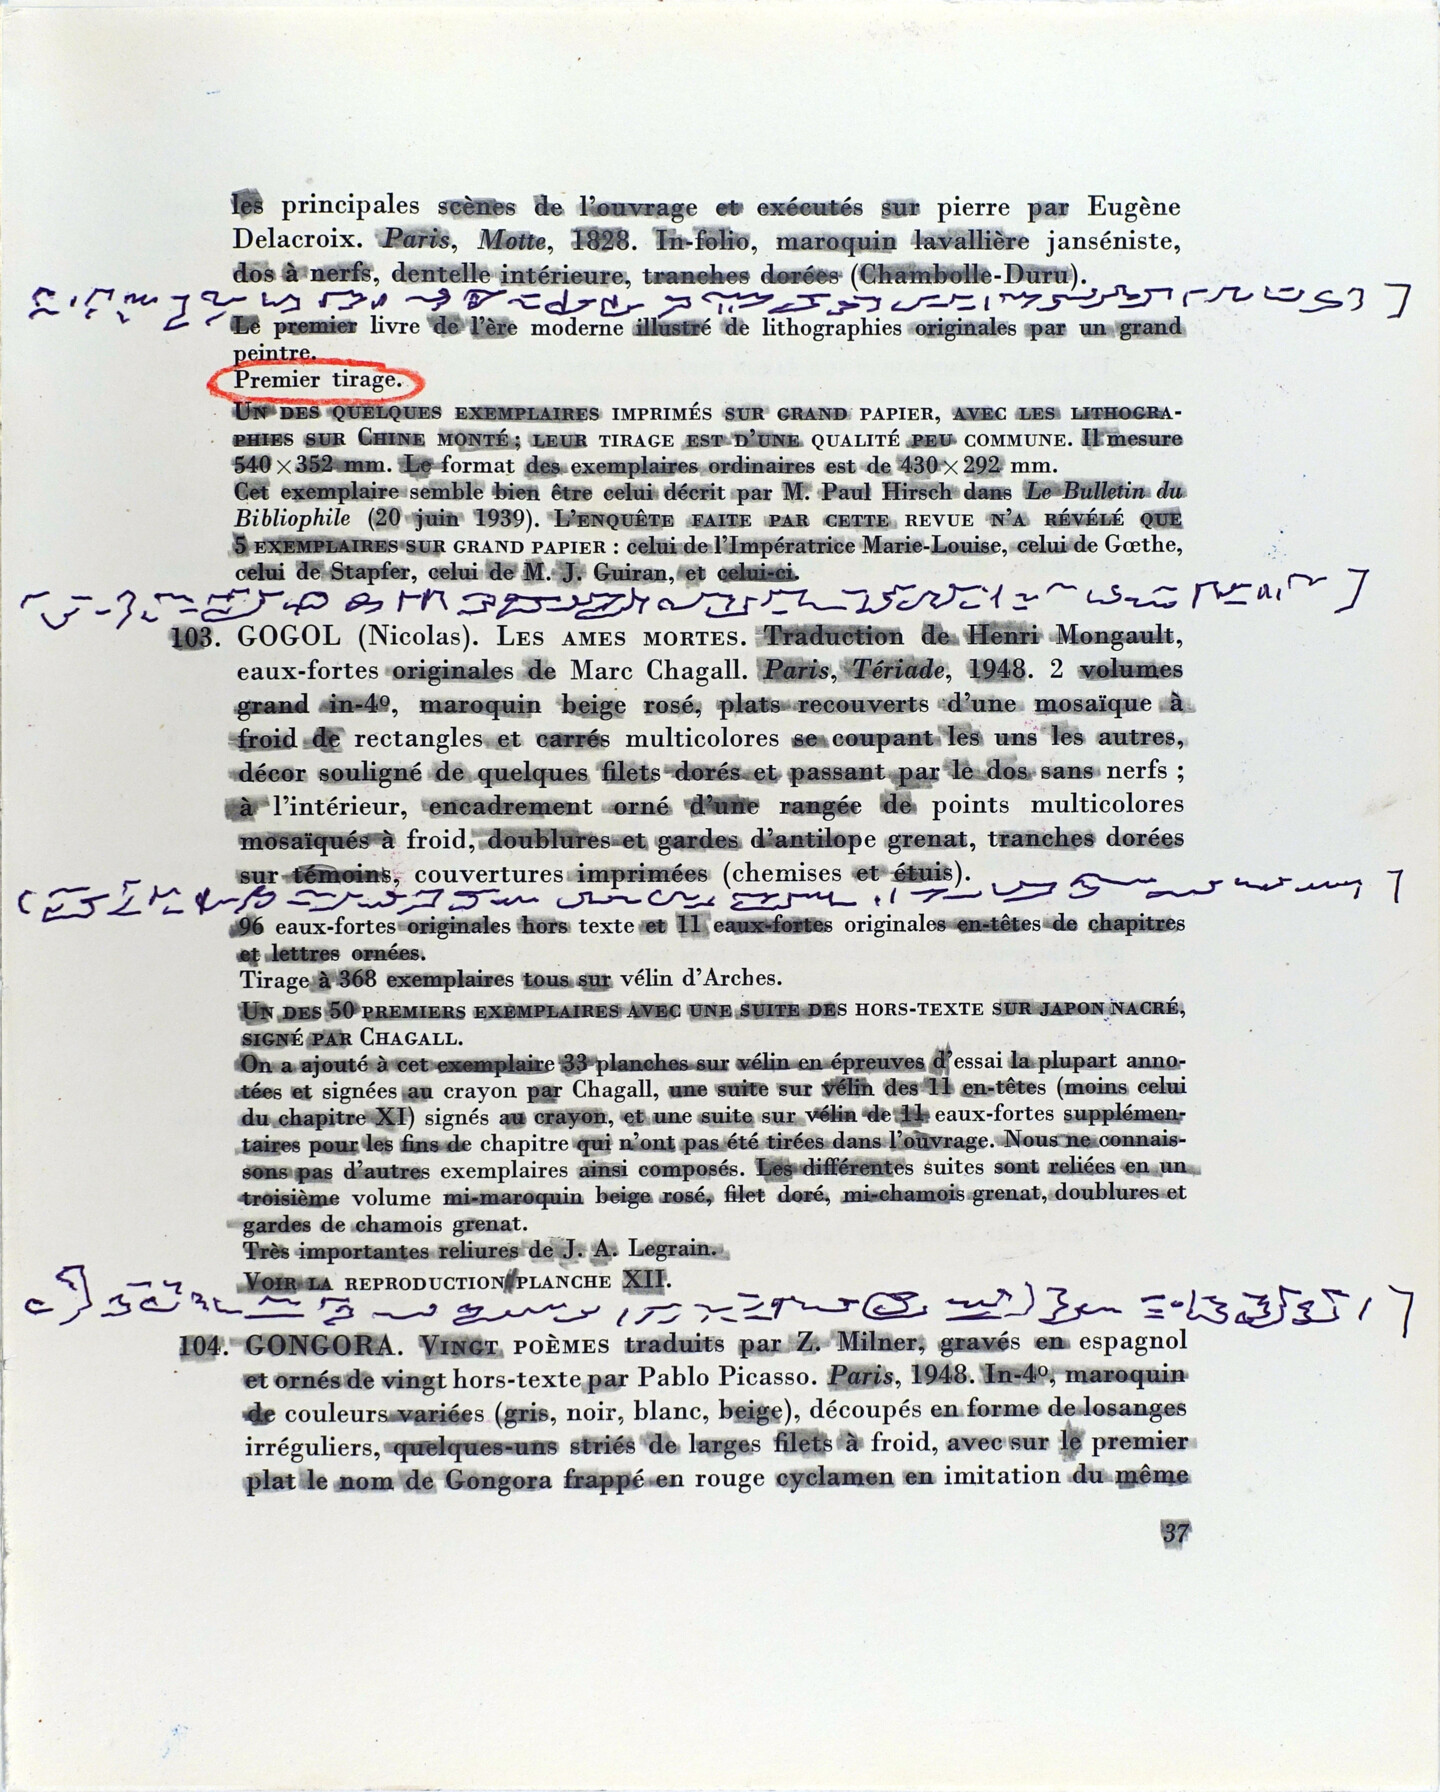 les principales scènes de l'ouvrage et exécutés sur pierre par Eugène
Delacroix. Paris, Motte, 1828. In-folio, maroquin lavallière janséniste,
dos à nerfs, dentelle intérieure, tranches dorées (Chambolle-Duru).
Le premier livre de l'ère moderne illustré de lithographies originales par un grand
peintre.
Premier tirage.
UN DES QUELQUES EXEMPLAIRES IMPRIMÉS SUR GRAND PAPIER, AVEC LES LITHOGRA-
PHIES SUR CHINE MONTÉ ; LEUR TIRAGE EST D'UNE QUALITÉ PEU COMMUNE. Il mesure
540 × 352 mm. Le format des exemplaires ordinaires est de 430 × 292 mm.
Cet exemplaire semble bien être celui décrit par M. Paul Hirsch dans Le Bulletin du
Bibliophile (20 juin 1939). L'ENQUÊTE FAITE PAR CETTE REVUE N'A RÉVÉLÉ QUE
5 EXEMPLAIRES SUR GRAND PAPIER : celui de l'Impératrice Marie-Louise, celui de Gœthe,
celui de Stapfer, celui de M. J. Guiran, et celui-ci.
103. GOGOL (Nicolas). LES AMES MORTES. Traduction de Henri Mongault,
eaux-fortes originales de Marc Chagall. Paris, Tériade, 1948. 2 volumes
grand in-4º, maroquin beige rosé, plats recouverts d'une mosaïque à
froid de rectangles et carrés multicolores se coupant les uns les autres,
décor souligné de quelques filets dorés et passant par le dos sans nerfs ;
à l'intérieur, encadrement orné d'une rangée de points multicolores
mosaïqués à froid, doublures et gardes d'antilope grenat, tranches dorées
sur témoins, couvertures imprimées (chemises et étuis).
96 eaux-fortes originales hors texte et 11 eaux-fortes originales en-têtes de chapitres
et lettres ornées.
Tirage à 368 exemplaires tous sur vélin d'Arches.
UN DES 50 PREMIERS EXEMPLAIRES AVEC UNE SUITE DES HORS-TEXTE SUR JAPON NACRÉ,
SIGNÉ PAR CHAGALL.
On a ajouté à cet exemplaire 33 planches sur vélin en épreuves d'essai la plupart anno-
tées et signées au crayon par Chagall, une suite sur vélin des 11 en-têtes (moins celui
du chapitre XI) signés au crayon, et une suite sur vélin de 11 eaux-fortes supplémen-
taires pour les fins de chapitre qui n'ont pas été tirées dans l'ouvrage. Nous ne connais-
sons pas d'autres exemplaires ainsi composés. Les différentes suites sont reliées en un
troisième volume mi-maroquin beige rosé, filet doré, mi-chamois grenat, doublures et
gardes de chamois grenat.
Très importantes reliures de J. A. Legrain.
VOIR LA REPRODUCTION PLANCHE XII.
104. GONGORA. VINGT POÈMES traduits par Z. Milner, gravés en espagnol
et ornés de vingt hors-texte par Pablo Picasso. Paris, 1948. In-4º, maroquin
de couleurs variées (gris, noir, blanc, beige), découpés en forme de losanges
irréguliers, quelques-uns striés de larges filets à froid, avec sur le premier
plat le nom de Gongora frappé en rouge cyclamen en imitation du même
37